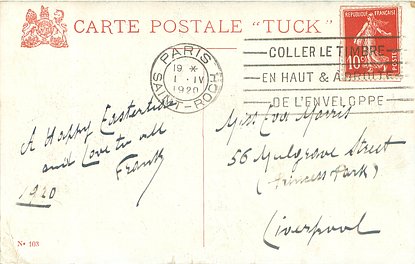 CARTE POSTALE "TUCK"
PARIS
19 *
1 - IV
1920
SAINT-ROCH
COLLER LE TIMBRE
EN HAUT & À DROITE
DE L'ENVELOPPE
REPUBLIQUE FRANÇAISE
10
POSTES
A Happy Eastertide
and Love to all
Frank
1920
Miss Eva Morris
56 Mulgrave Street
(Princes Park)
Liverpool
No 103